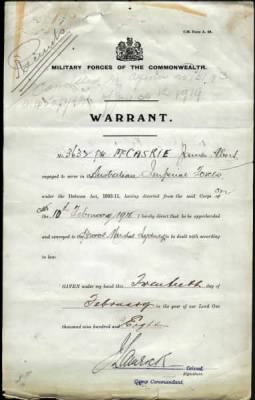 C.M. Form A. 28.
Records
MILITARY FORCES OF THE COMMONWEALTH.
1919
WARRANT.
3632 Pte McCASKIE James Albert
engaged to serve in Australian Imperial Forces
under the Defence Act, 1903-11, having deserted from the said Corps on
the 10th February 1918 I hereby direct that he be apprehended
and conveyed to the District Marshal Sydney to be dealt with according
to law:
GIVEN under my hand this Twentieth day of
February in the year of our Lord One
thousand nine hundred and Eight
Colonel
Signature
Camp Commandant.